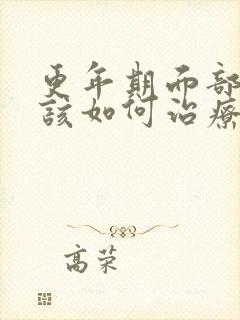 更年期而部
該如何治療
高荣